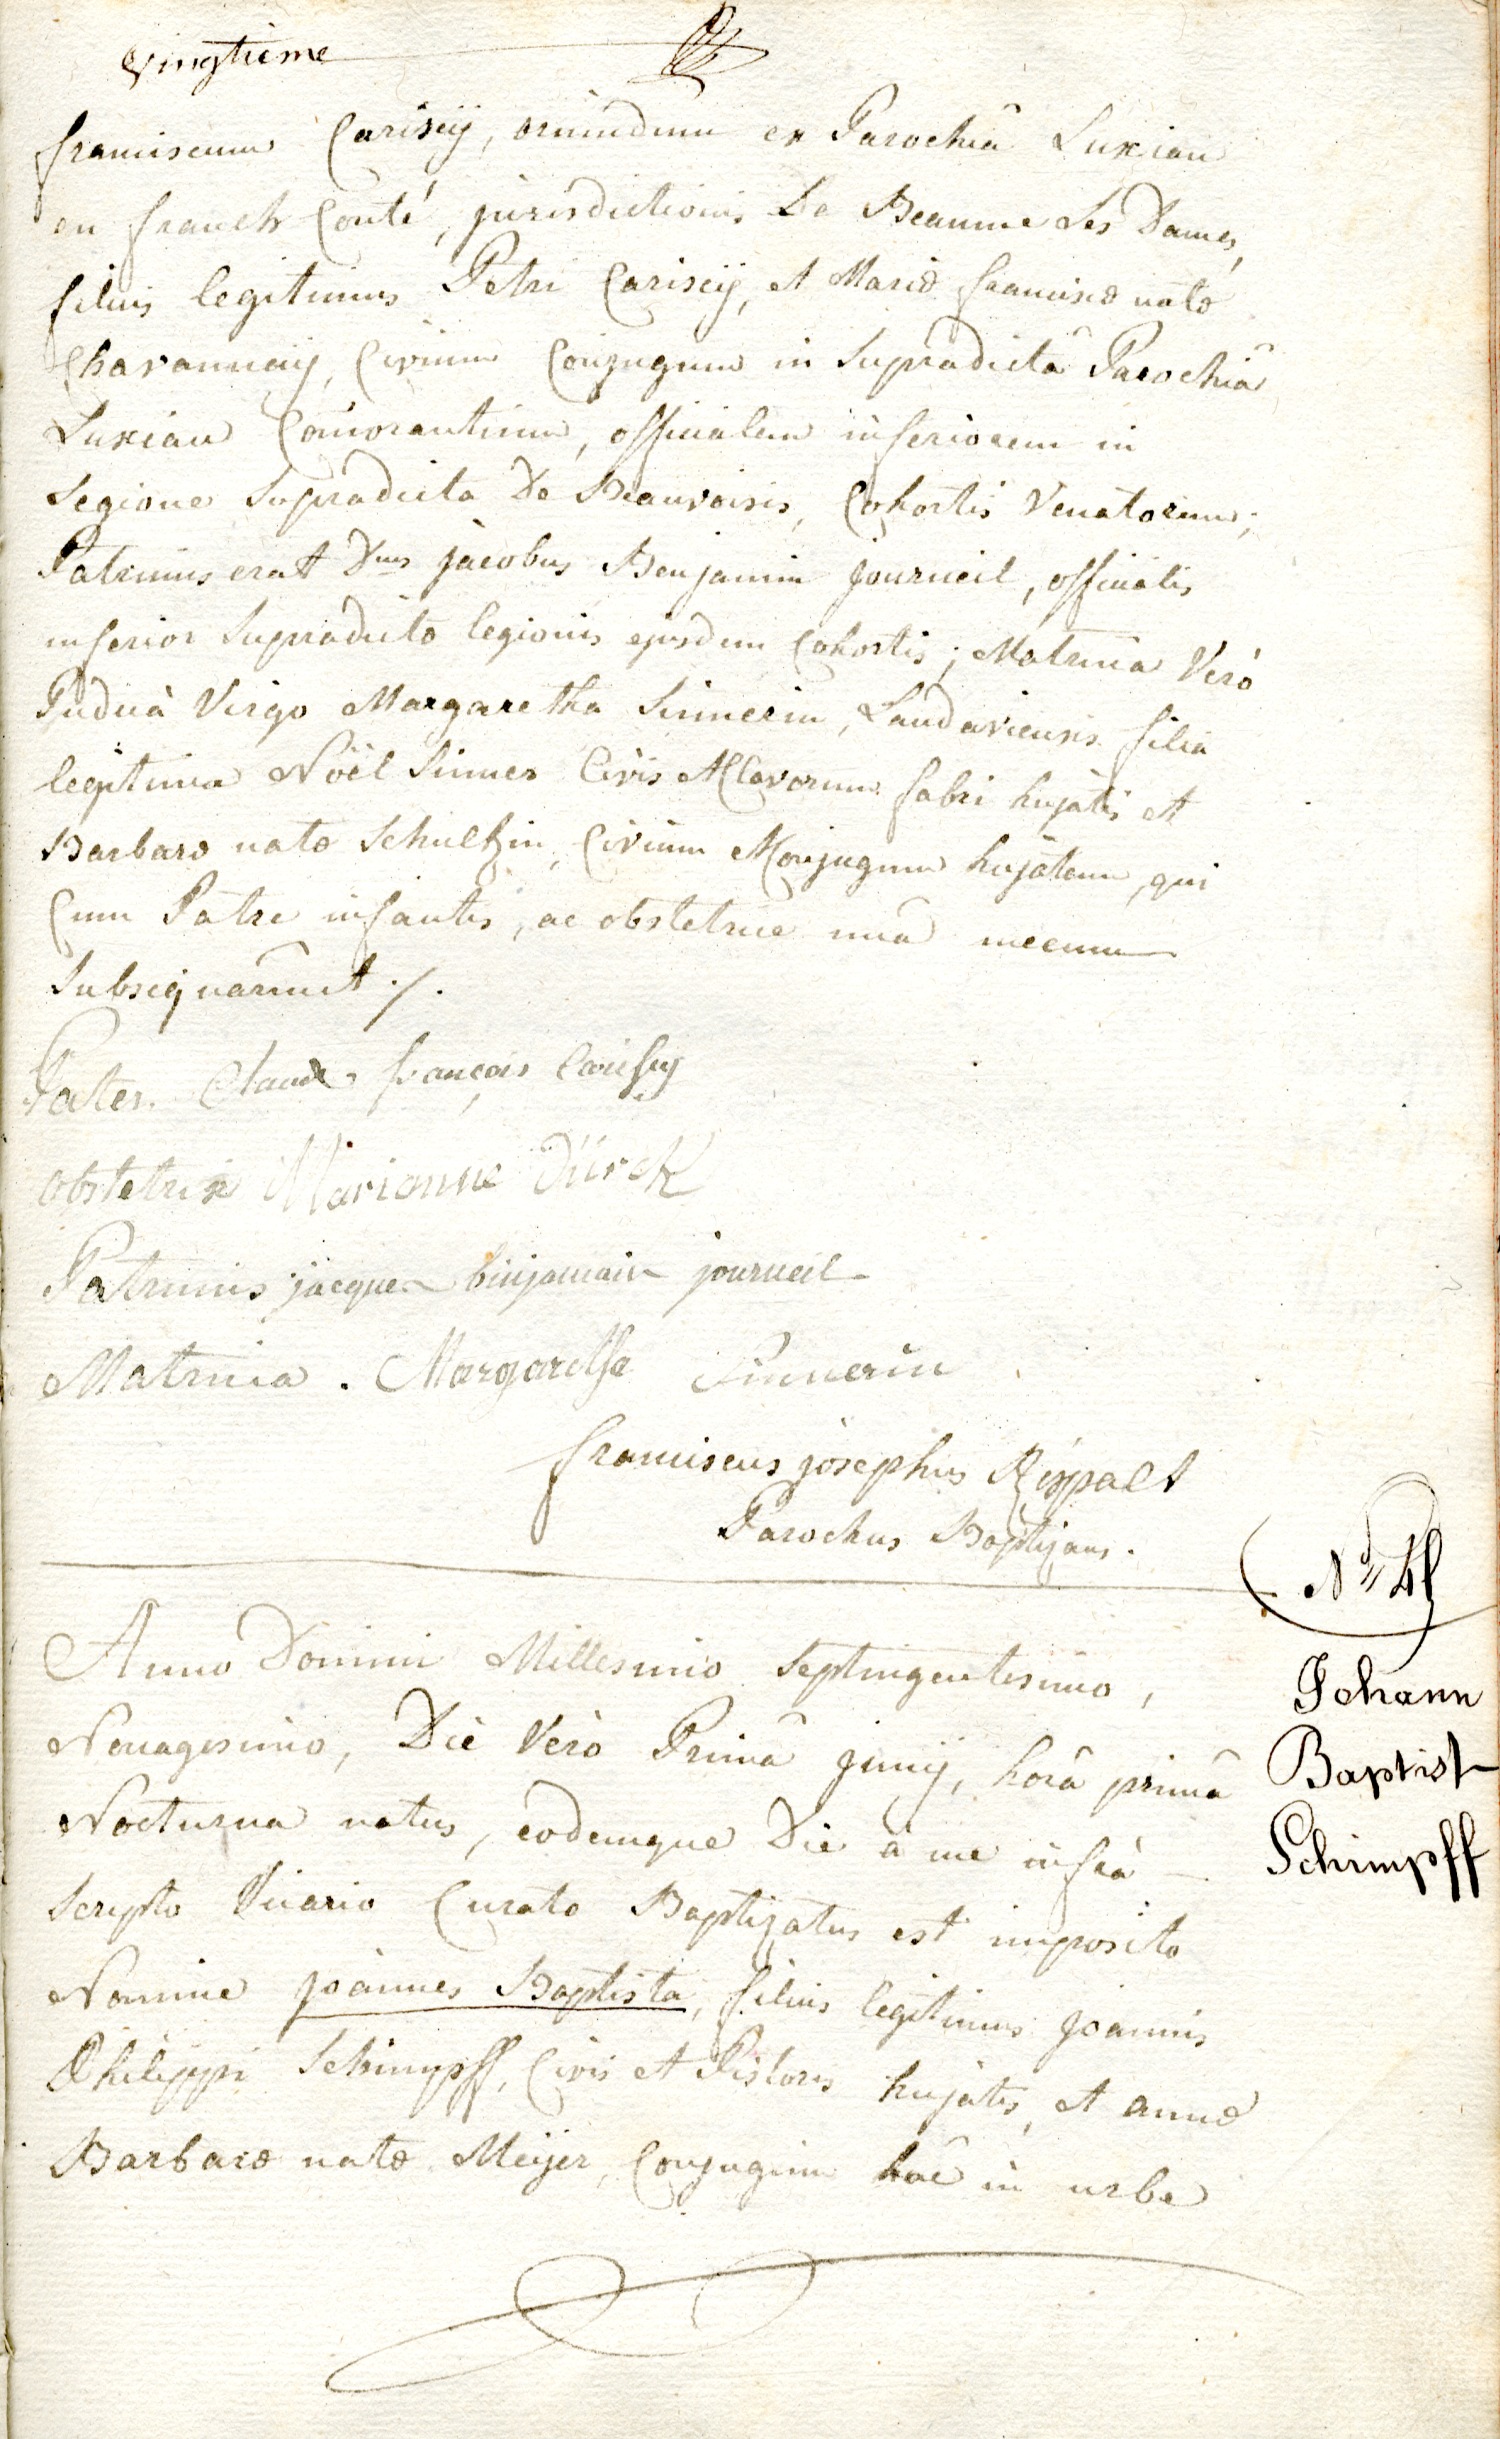 Vingtieme
franciscum Cariseij, oriundum ex Parochiâ Luxiau
en franch Conté, jurisdictionis De Beaume Les Dames,
filius legitimus Petri Cariseij, et Mariæ franciscæ natæ
Chavannaij, Civium Conjugum in Supradictâ Parochiâ
Luxiau Com̄orantium, officialem inferiorem in
Legione Supradicta De Beauvoisis, Cohortis Venatorum;
Patrinus erat Dnus jacobus Benjamin journeil, officialis
inferior Supradictæ legionis ejusdem Cohortis; Matrina Verò
Pudicà Virgo Margaretha Sinnerin, Landaviensis filia
legitima Noël Sinner Civis Clavorum fabri hujatis et
Barbaræ natæ Schultzin, Civium Conjugum hujatum, qui
Cum Patre infantis, ac obstetrice unà mecum
Subsignarunt ./.
Pater. Claude françois Carisey
obstetrix Marianne Dürck
Patrinus jacque binjamain journeil
Matrina . Margaretha Sinnerin
franciscus josephus Rippalt
Parochus Baptizans.
Anno Domini Millesimo Septingentesimo,
Nonagesimo, Die Verò Primâ junij, horâ primâ
Nocturna natus, eodemque Die à me infrà
Scripto Vicario Curato Baptizatus est imposito
Nomine joannes Baptista, filius legitimus joannis
Philippi Schimpff, Civis et Pistoris hujatis, et annæ
Barbaræ natæ Meijer, Conjugum hâc in urbe
Johann
Baptist
Schimpff